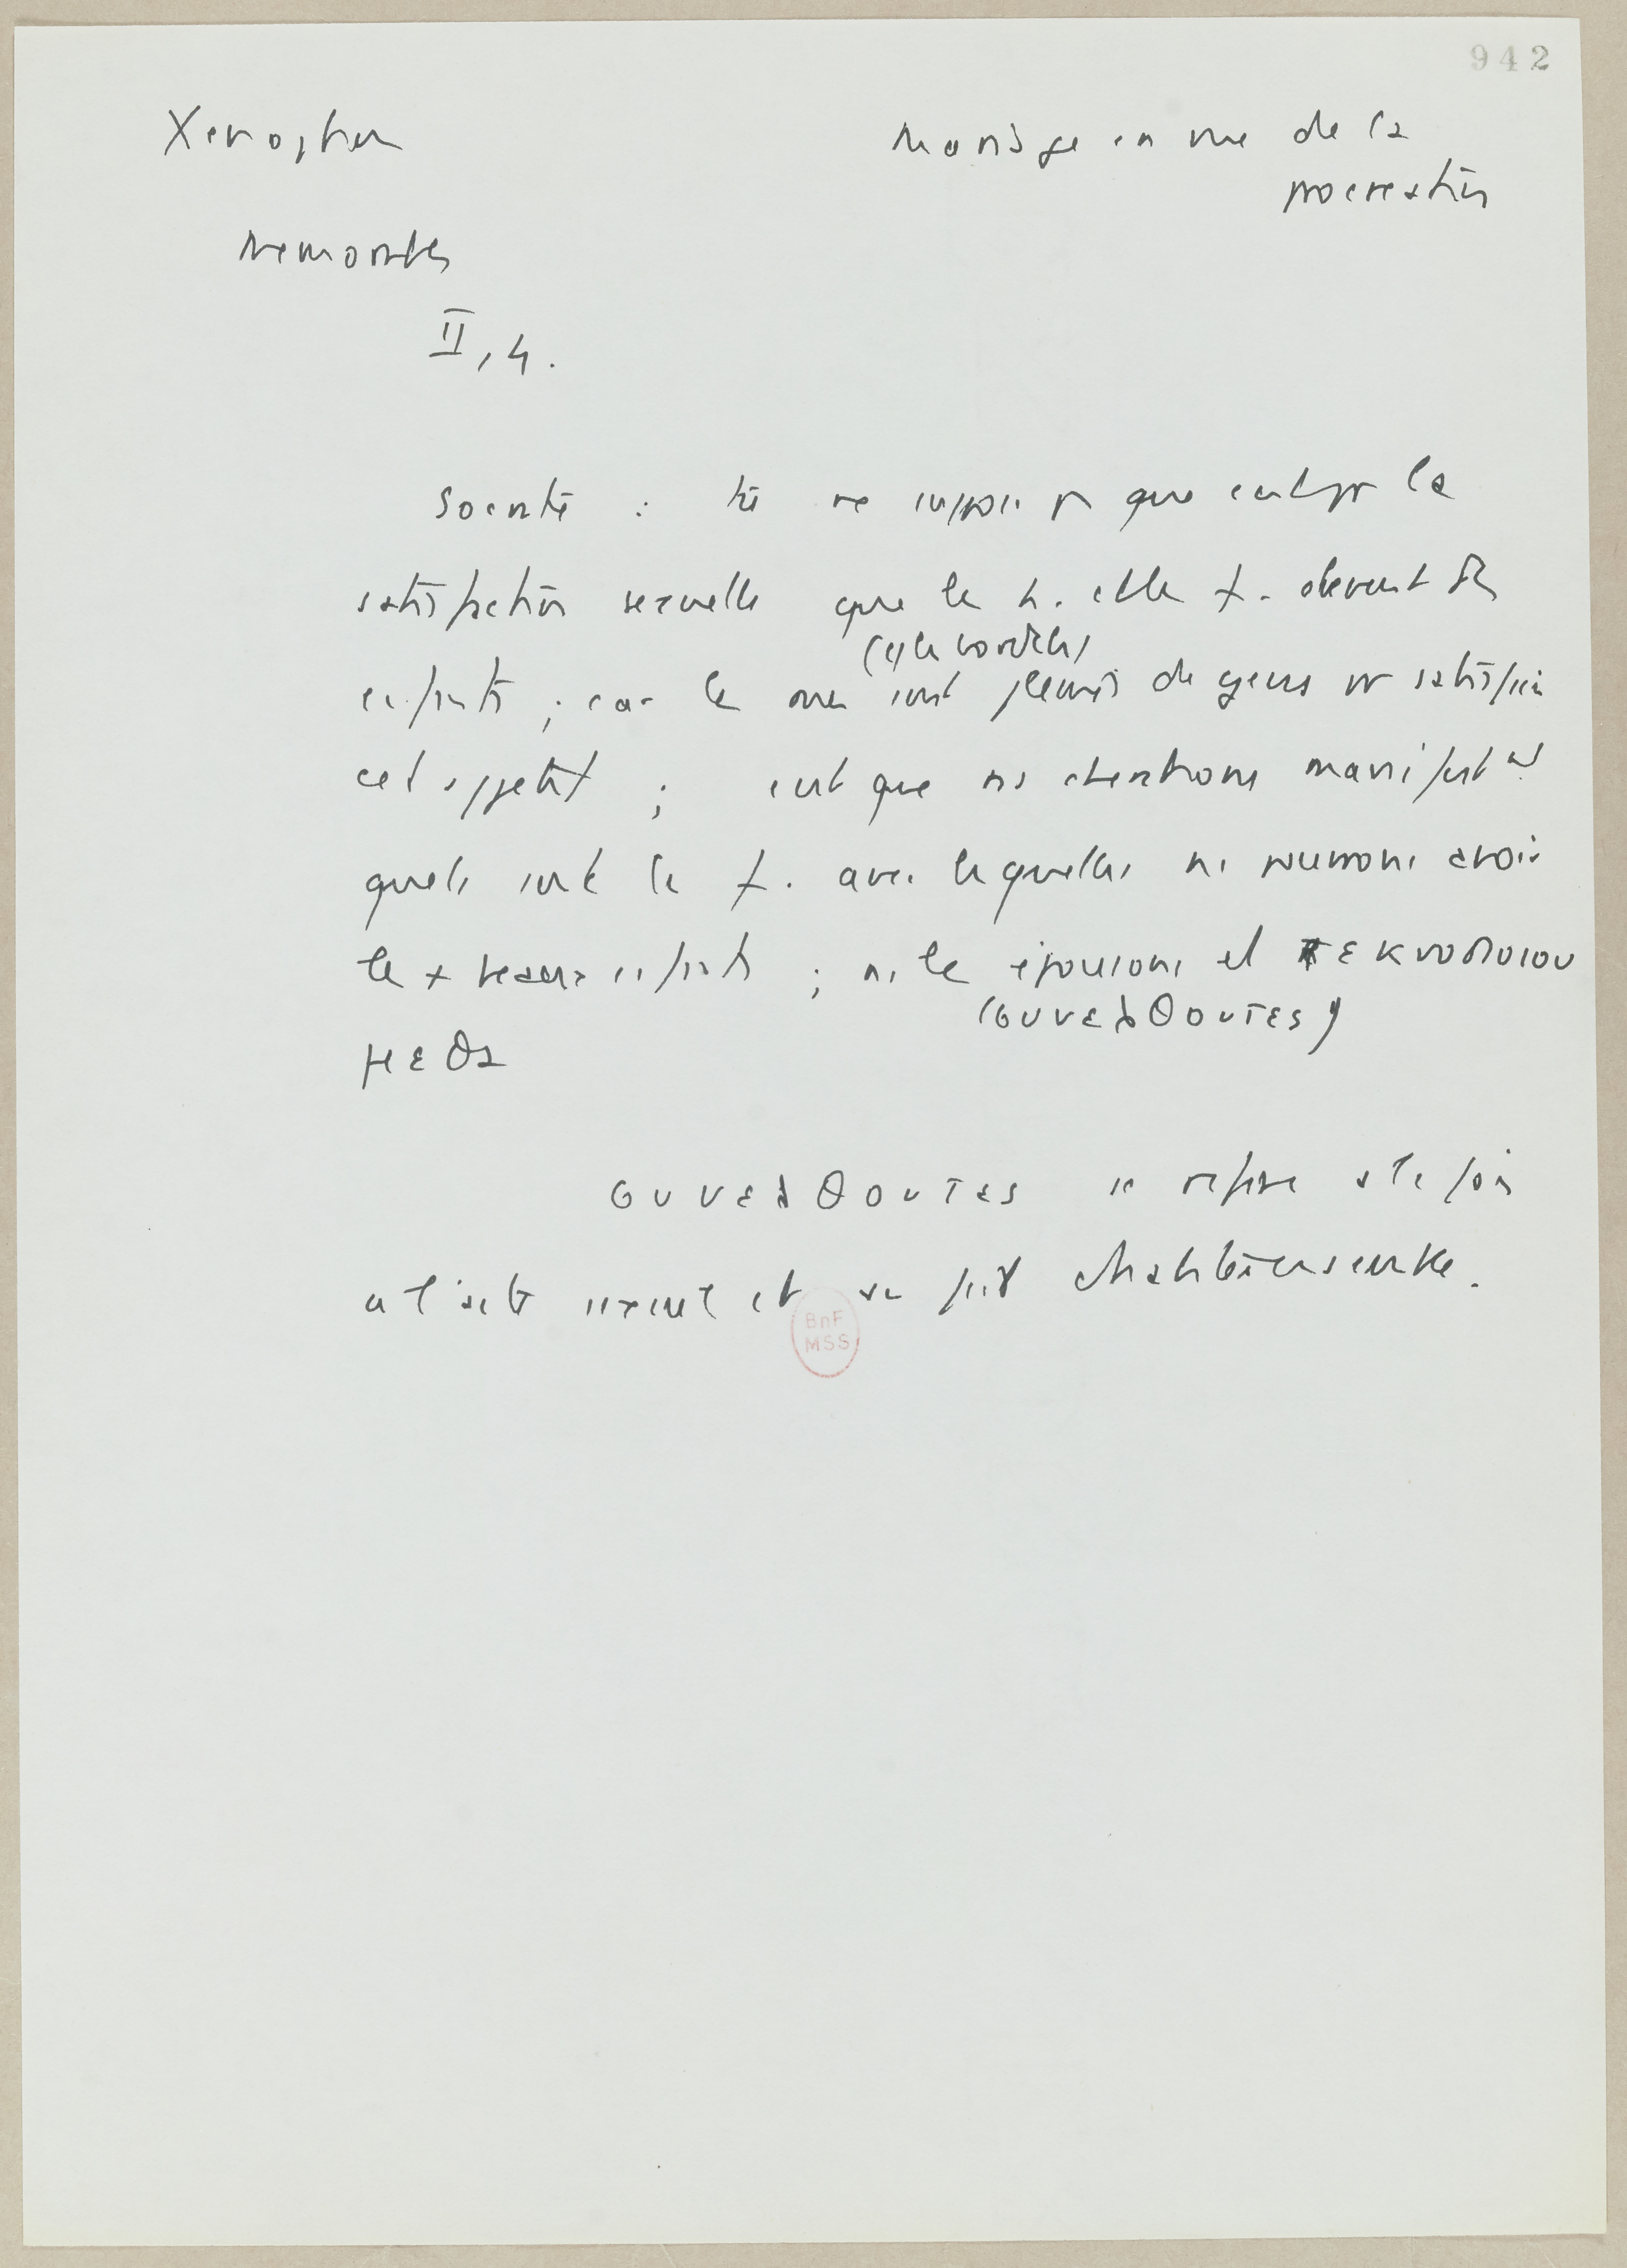 942
Xenophon
Mariage en vue de la
procréation
Memorables
II, 4.
Socrate : tu ne supposes pas que c'est pr la
satisfaction sexuelle que les h. et les f. devient des
enfants ; car les rues sont pleines de gens pr satisfaire
(et les bordels)
cet appétit ; c'est que ns cherchons manifestemt
quelles sont les f. avec lesquelles ns pourrons avoir
les + beaux enfants ; ns les épousons et τεκνοποιου
(συνελθοντες)
μεθα
συνελθοντες se réfère à la fois
à l'acte sexuel et au fait